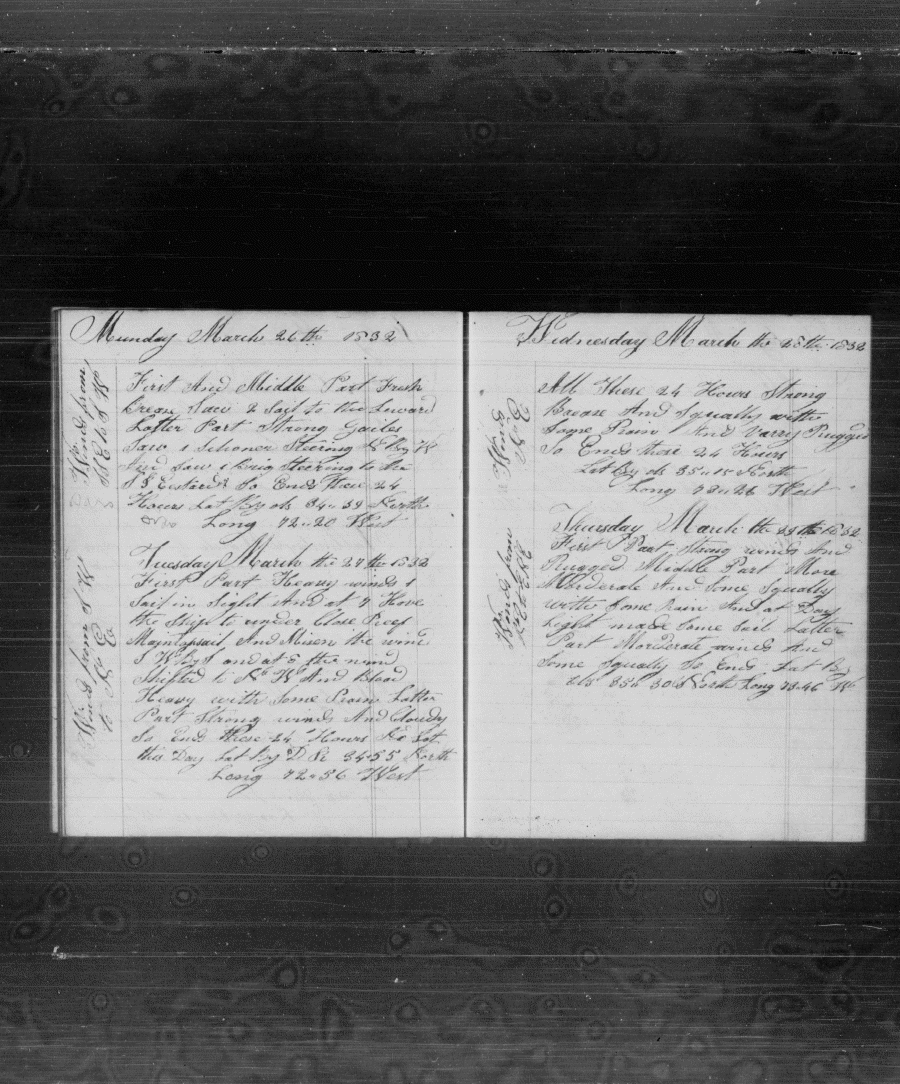 Munday March 26th 1832
Winds from
First And Middle Part Fresh
Brease Saw 2 Sail to the Leward
Latter Part Strong Gailes
Saw 1 Schoner Steering N By W
And Saw 1 Brig Steering to the
S Eastard So Ends these 24
Hours Lat By ob 34"39 North
Long 72"20 West
Tuesday March the 27th 1832
Winds from S W
to
First Part Heavy winds 1
Sail in Sight And at 7 Hove
the Ship to under Close Reef
Maintopsail And Misen the wind
S W By S and at 8 the wind
Shifted to N W And Blead
Heavy with Some Rain Latter
Part Strong winds And Cloudy
So Ends these 24 Hours No
this Day Lat By D R 34"55 North
Long 72"56 West
Wednesday March the 28th 1832
Winds
All These 24 Hours Strong
Brease And Squally with
Some Rain And Varry Rugged
So Ends these 24 Hours
Lat By ob 35"15 North
Long 73"26 West
Thursday March the 29th 1832
Winds from
First Part Strong winds And
Rugged Middle Part More
Morderate And Some Squally
with Some Rain And at Day
Light made Some Sail Latter
Part Morderate winds And
Some Squally So Ends Lat By
ob 35" 30 North Long 73"46 W